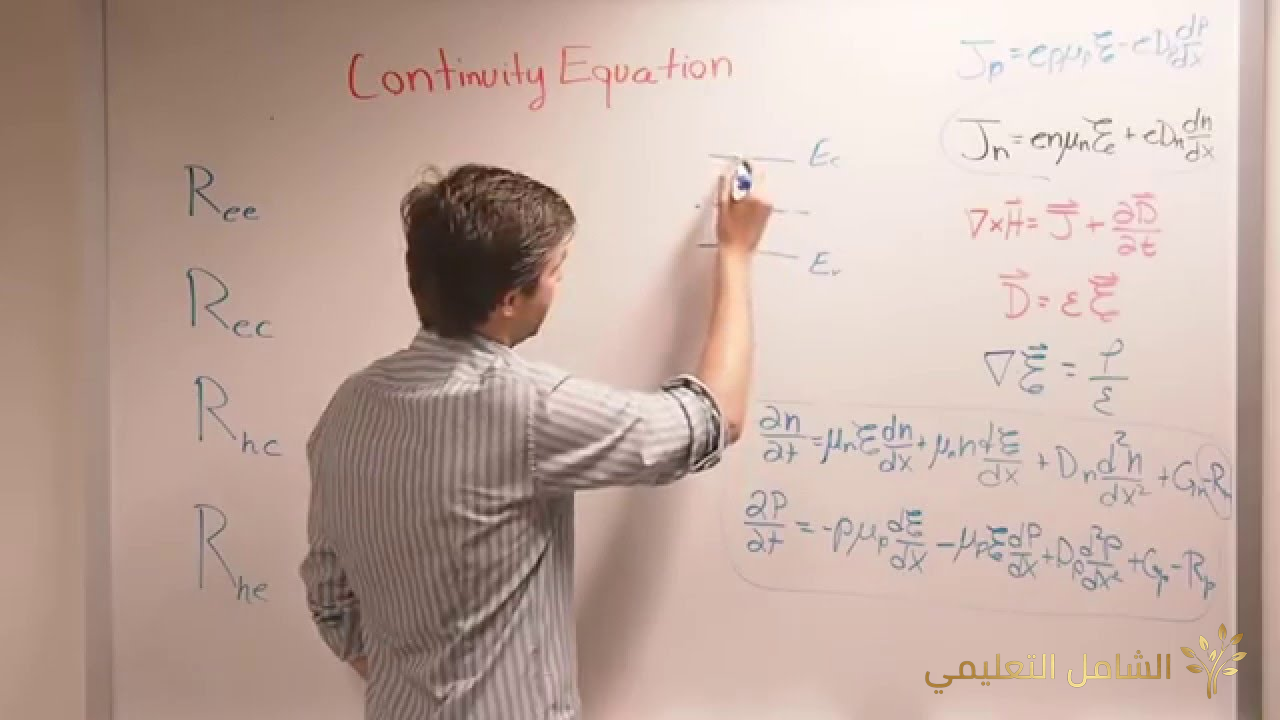 Continuity Equation
R_ee
R_ec
R_hc
R_he
E_c
E_v
J_p = epμ_pξ - eD_p dp/dx
J_n = enμ_nξ + eD_n dn/dx
∇×H⃗ = J⃗ + ∂D⃗/∂t
D⃗ = εξ⃗
∇ξ⃗ = ρ/ε
∂n/∂t = μ_nξ dn/dx + μ_n n dξ/dx + D_n d²n/dx² + G_n - R_n
∂P/∂t = -pμ_p dξ/dx - μ_pξ dp/dx + D_p d²p/dx² + G_p - R_p
الشامل التعليمي